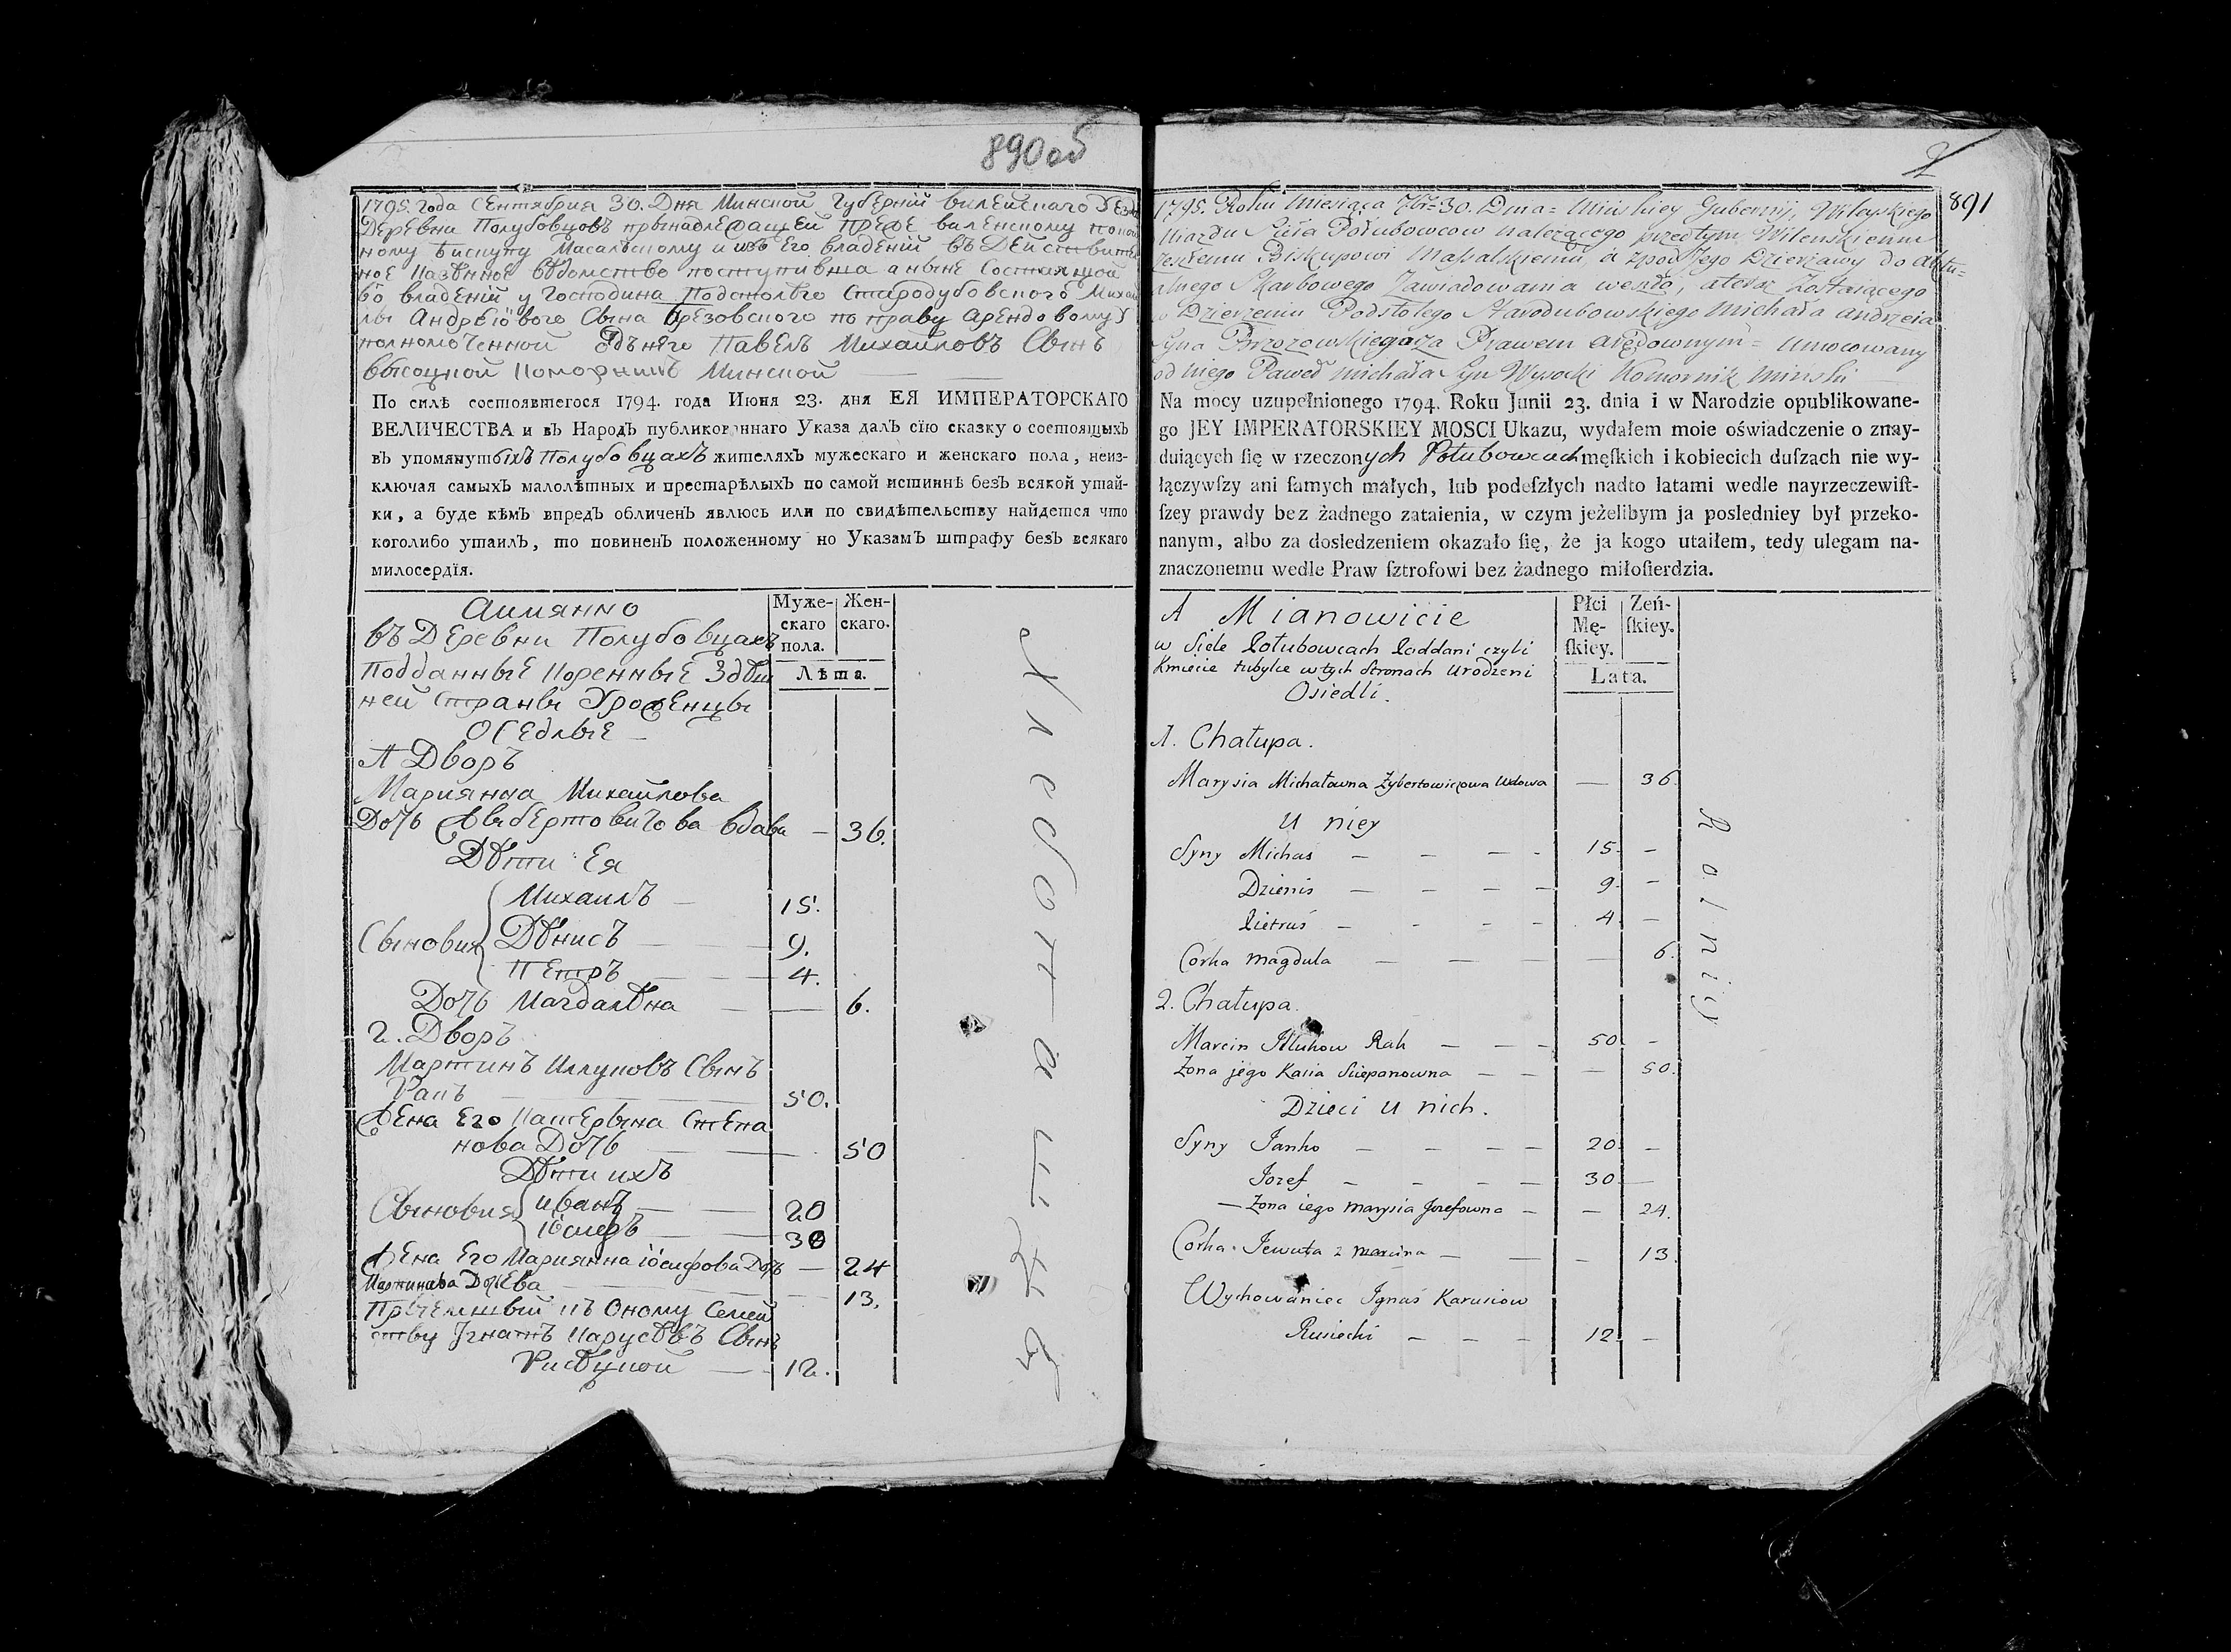 890об
1795. Года Сентября 30. Дня Минской Губерній вилейского
Деревни Полубовцовъ прынадлежащей преже виленскому
ному Бискупу Масальскому и изъ Его владеній въ Действите
ное Казенное ведомство поступивша а ныне Состаящой
во владеній у Господина Подстолего Стародубовского Михай
лы Андреіового Сына Брезовского по праву Арендовому
полномоченной одъ него Павелъ Михайловъ Сынъ
высоцкой Коморникъ Минской
По силѣ состоявшегося 1794. года Июня 23. дня ЕЯ ИМПЕРАТОРСКАГО
ВЕЛИЧЕСТВА и въ Народъ публикованнаго Указа далъ сїю сказку о состоящихъ
въ упомянутыхъ Полубовцахъ жителяхъ мужескаго и женскаго пола, неиз-
ключая самыхъ малолѣтныхъ и престарѣлыхъ по самой истиннѣ безъ всякой утай-
ки, а буде кѣмъ впредъ обличенъ явлюсь или по свидѣтельству найдется что
коголибо утаилъ, то повиненъ положенному по Указамъ штрафу безъ всякаго
милосердїя.
Аимянно
въ Деревни Полубовцахъ
Подданные Коренные Здѣш
ней Страны Уроженцы
Оседлые
Муже-
скаго
пола.
Жен-
скаго.
Лѣта.
1 Дворъ
Марианна Михайлова
Дочь Жыбертовичова вдава — 36.
Дѣти Ея
Сыновия Михаилъ — 15.
Дѣнисъ — 9.
Петръ — 4.
Дочь Магдалѣна — 6.
2. Дворъ
Мартинъ Иллуковъ Сынъ
Ракъ — 50.
Жена Его Катерына Степа
нова Дочь — 50
Дѣти ихъ
Сыновия Иванъ — 20
Іосифъ — 30
Жена Его Марианна Іосифова Дочь — 24
Мартинова Дочь Ева — 13.
Прыемшый къ Оному Семей
ству Игнатъ Карусѣвъ Сынъ
Русѣцкой — 12.
2
891
1795. Roku Miesiąca 7br= 30. Dnia = Mińskiey Gubernij, Wileyskiego
Uiazdu Sioła Połubowcow należącego przedtym Wilenskiemu
zeszłemu Biskupowi Massalskiemu, a zpod Jego Dzierżawy do Aktu=
alnego Skarbowego Zawiadowania weszło, ateraz Zostaiącego
w Dzierżeniu Podstolego Starodubowskiego Michała Andrzeia
Syna Brzozowskiego za Prawem Arędownym = Umocowany
od niego Paweł Michała Syn Wysocki Komornik Minski
Na mocy uzupełnionego 1794. Roku Junii 23. dnia i w Narodzie opublikowane-
go JEY IMPERATORSKIEY MOSCI Ukazu, wydałem moie oświadczenie o znay-
duiących ſię w rzeczonych Połubowcach męſkich i kobiecich duſzach nie wy-
łączywſzy ani ſamych małych, lub podeſzłych nadto latami wedle nayrzeczewiſt-
ſzey prawdy bez żadnego zataienia, w czym jeżelibym ja posledniey był przeko-
nanym, albo za dosledzeniem okazało ſię, że ja kogo utaiłem, tedy ulegam na-
znaczonemu wedle Praw ſztrofowi bez żadnego miłoſierdzia.
A Mianowicie
w Siele Połubowcach Poddani czyli
Kmiecie tubylce w tych Stronach Urodzeni
Osiedli.
Płci
Mę-
ſkiey.
Zeń-
ſkiey.
Lata.
1. Chałupa.
Marysia Michałowna Zybertowiczowa Wdowa — 36.
U niey
Syny Michaś — 15. —
Dzienis — 9. —
Pietruś — 4. —
Corka Magdula — 6.
2. Chałupa.
Marcin Illukow Rak — 50 —
Zona jego Kasia Sciepanowna — 50.
Dzieci u nich.
Syny Janko — 20. —
Jozef — 30 —
— Zona iego Marysia Jozefowna — 24.
Corka Jewuta z Marcina — 13.
Wychowaniec Ignaś Karusiow
Rusiecki — 12 —
Rolniy